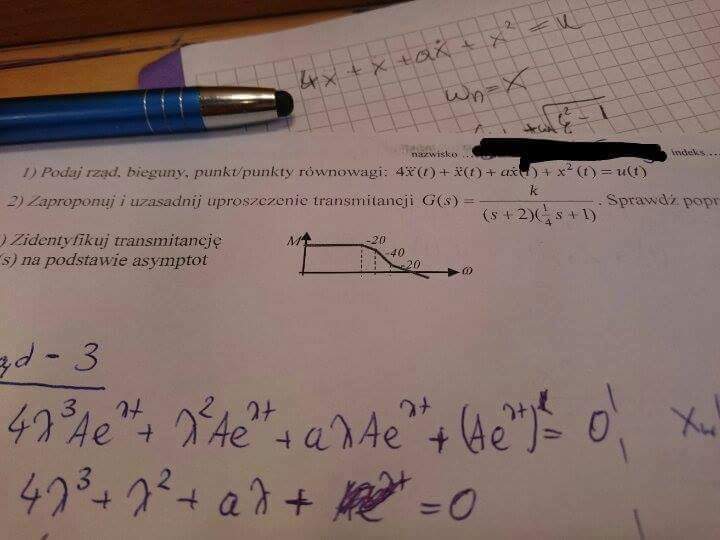 4x + x + aẋ + x² = u
ωn = X
nazwisko ... indeks...
1) Podaj rząd, bieguny, punkt/punkty równowagi: 4x⃛(t) + ẍ(t) + aẋ(t) + x²(t) = u(t)
2) Zaproponuj i uzasadnij uproszczenie transmitancji G(s) = k / ((s + 2)(¼s + 1)) . Sprawdź popr
) Zidentyfikuj transmitancję
(s) na podstawie asymptot
M -20 -40 -20 ω
ąd - 3
4λ³Ae^λt + λ²Ae^λt + aλAe^λt + (Ae^λt)² = 0,
4λ³ + λ² + aλ + = 0